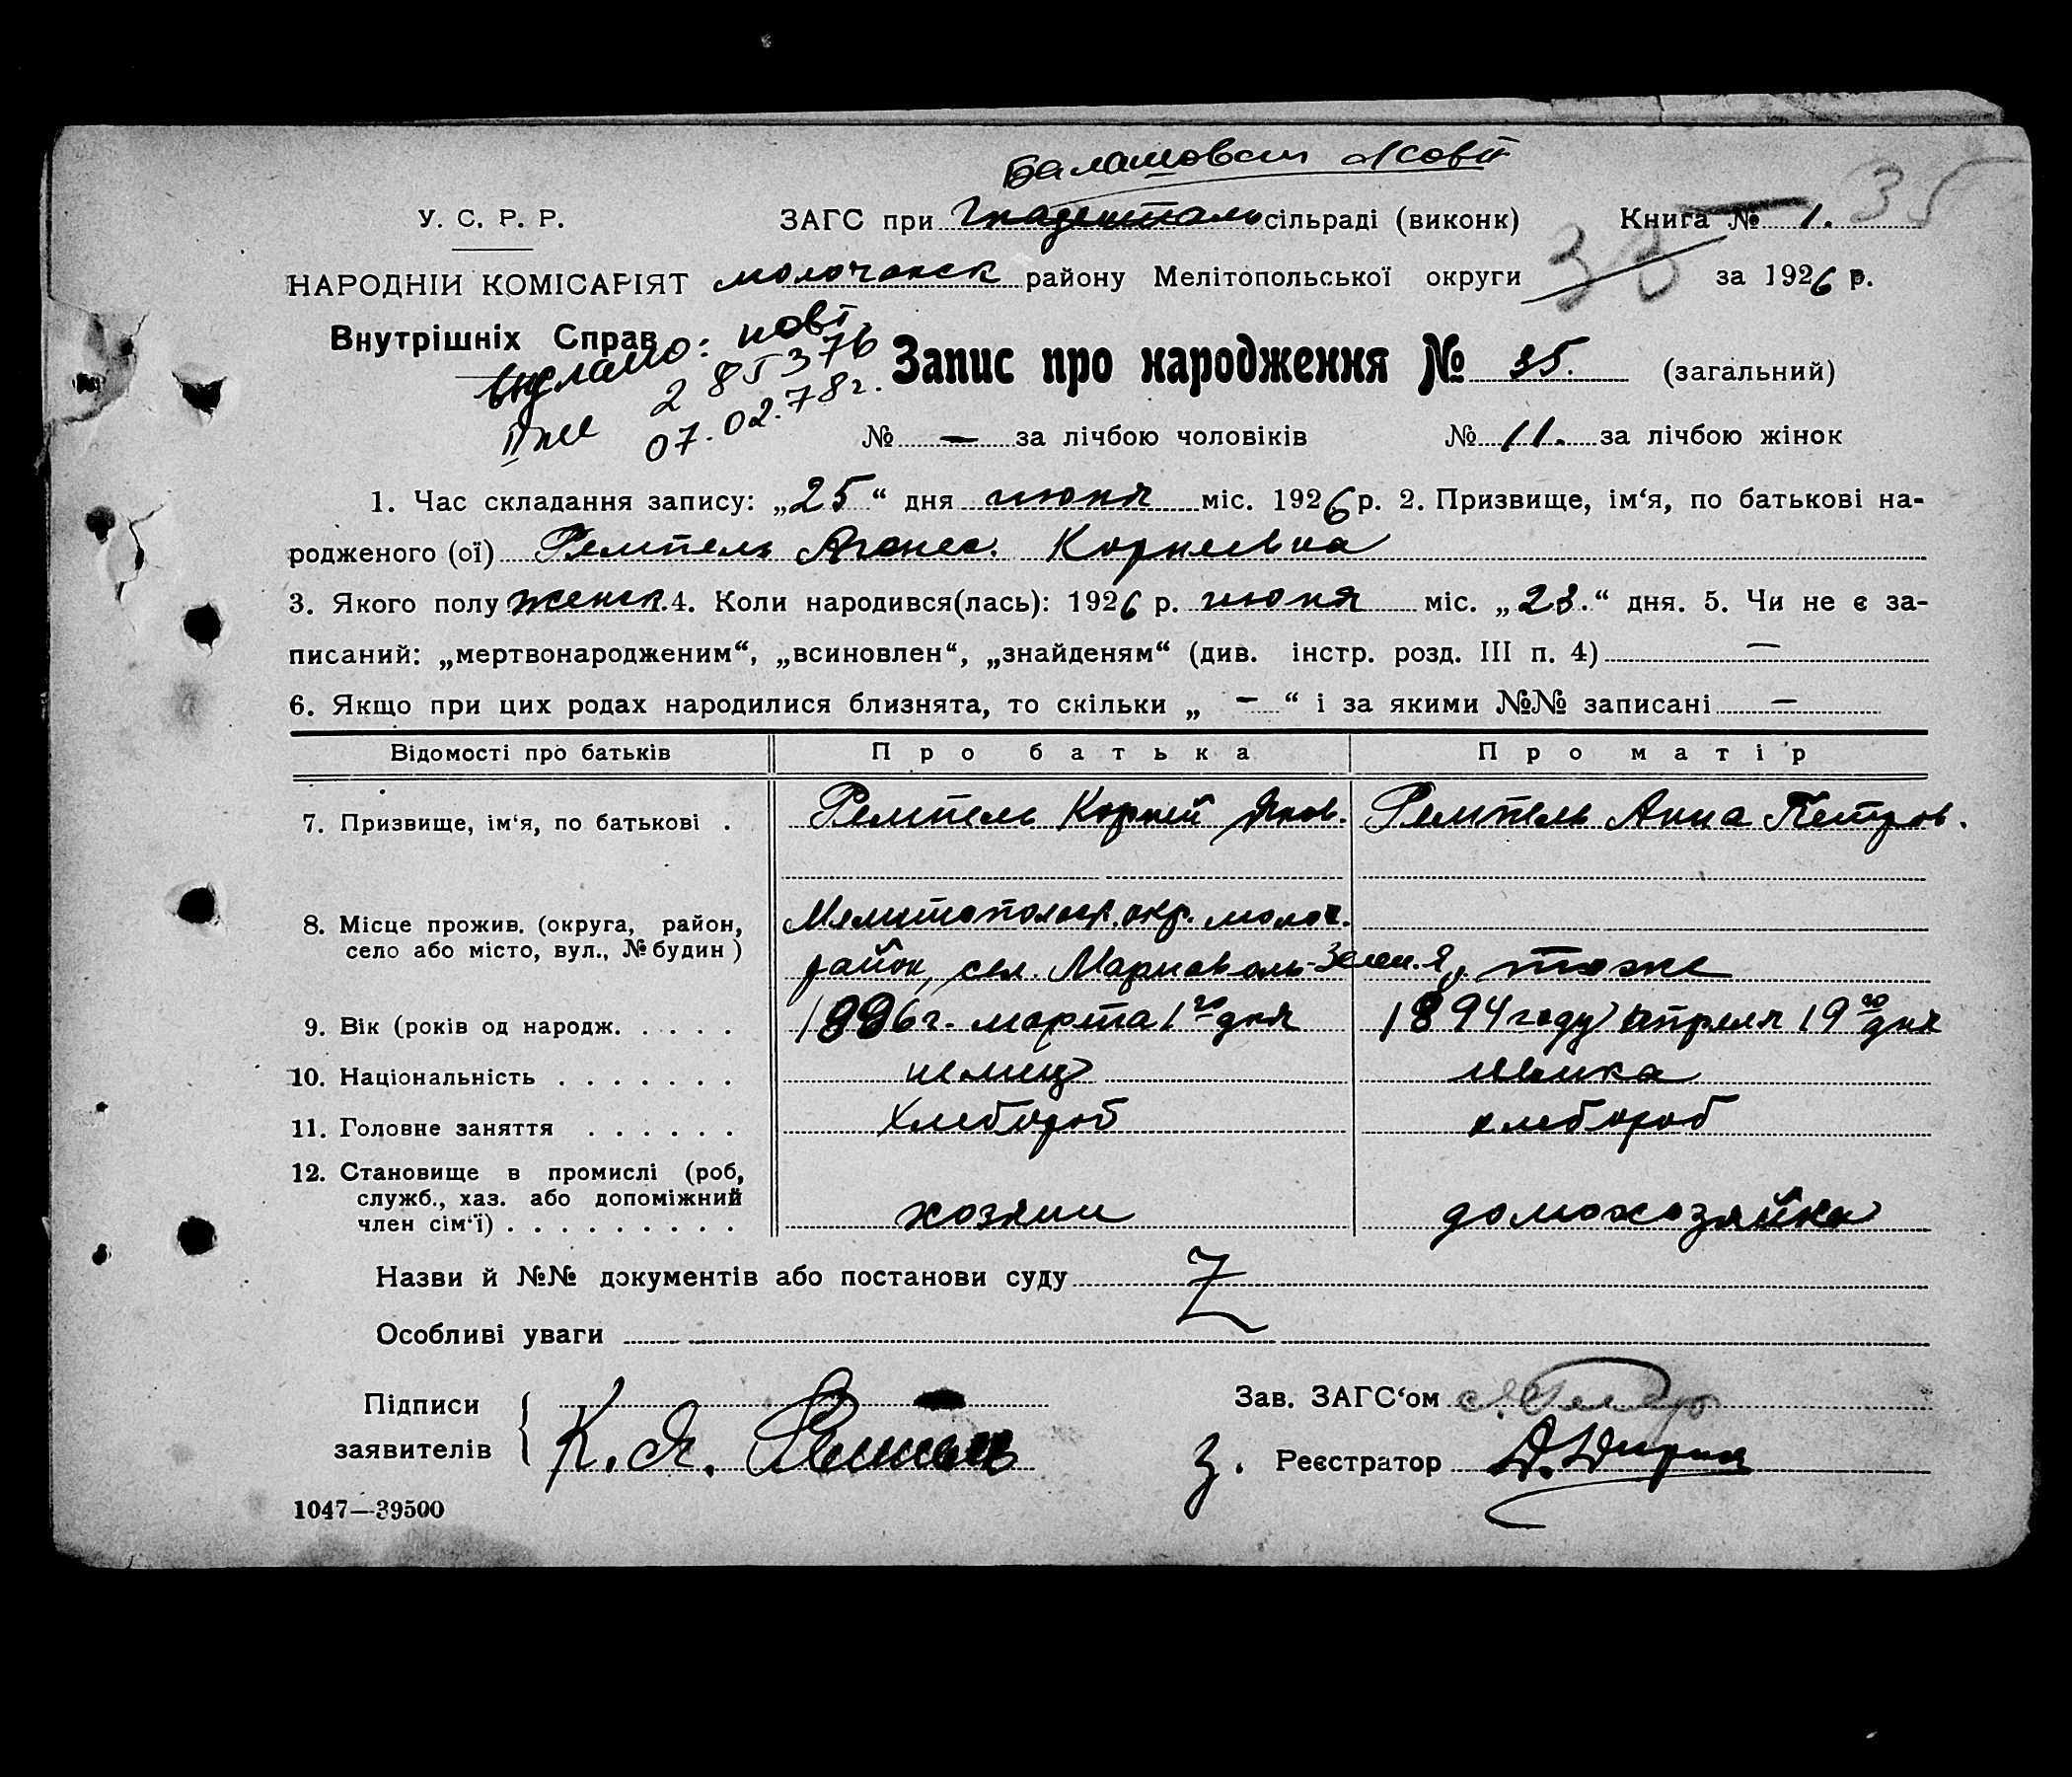 35
У. С. Р. Р.
ЗАГС при сільраді (виконк)
Книга № 1.
НАРОДНІЙ КОМІСАРІЯТ
молочанск району Мелітопольської округи
33
за 1926 р.
Внутрішніх Справ
видано: повт.
285376
07.02.78г.
Запис про народження № 35. (загальний)
№ — за лічбою чоловіків № 11. за лічбою жінок
1. Час складання запису: „25“ дня июня міс. 1926 р. 2. Призвище, ім‘я, по батькові на-
родженого (ої) Ремпель Агнес. Корнеевна
3. Якого полу женск. 4. Коли народився(лась): 1926 р. июня міс. „23.“ дня. 5. Чи не є за-
писаний: „мертвонародженим“, „всиновлен“, „знайденям“ (див. інстр. розд. III п. 4) —
6. Якщо при цих родах народилися близнята, то скільки „ — “ і за якими №№ записані —
Відомості про батьків
Про батька
Про матір
7. Призвище, ім‘я, по батькові .
Ремпель Корней Яков.
Ремпель Анна Петров.
8. Місце прожив. (округа, район,
село або місто, вул., № будин )
Мелитопольск. окр. молоч.
район, сел.
тоже
9. Вік (років од народж. . . . .
1896 г. марта 1го дня
1894 году апреля 19го дня
10. Національність . . . . . . .
немец
немка
11. Головне заняття . . . . . .
хлебороб
хлебороб
12. Становище в промислі (роб,
служб., хаз. або допоміжний
член сім‘ї) . . . . . . . . .
хозяин
домохозяйка
Назви й №№ документів або постанови суду
Z
Особливі уваги
Підписи
заявителів
К. Я. Ремпель
Зав. ЗАГС‘ом
Реєстратор
1047—39500